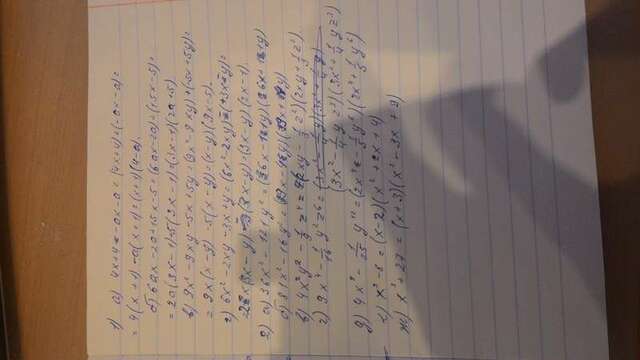 1) а) 4x+4-ax-a=(4x+4)+(-ax-a)=
=4(x+1)-a(x+1)=(x+1)(4-a).
б) 6ax-2a+15x-5=(6ax-2a)+(15x-5)=
=2a(3x-1)+5(3x-1)=(3x-1)(2a+5).
в) 9x²-9xy-5x+5y=(9x²-9xy)+(-5x+5y)=
=9x(x-y)-5(x-y)=(x-y)(9x-5).
г) 6x²-2xy-3x+y=(6x²-2xy)-(3x-y)=
2x(3x-y)-(3x-y)=(3x-y)(2x-1).
2) а) 36x²-121y²=(6x-11y)(6x+11y)
б) 81x²-16y²=(9x-4y)(9x+4y)
в) 4x²y²-1/9 z⁴=(2xy-1/3 z²)(2xy+1/3 z²)
г) 9x⁴-1/16 y²z⁶=
(3x²-1/4 y z³)(3x²+1/4 y z³)
д) 4x⁴-1/25 y¹²=(2x²-1/5 y⁶)(2x²+1/5 y⁶)
е) x³-8=(x-2)(x²+2x+4)
ж) x³+27=(x+3)(x²-3x+9)